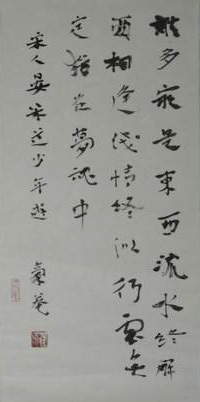 離多最是東西流水終解
兩相逢淺情終似行雲無
定猶在夢魂中
宋人晏幾道少年遊